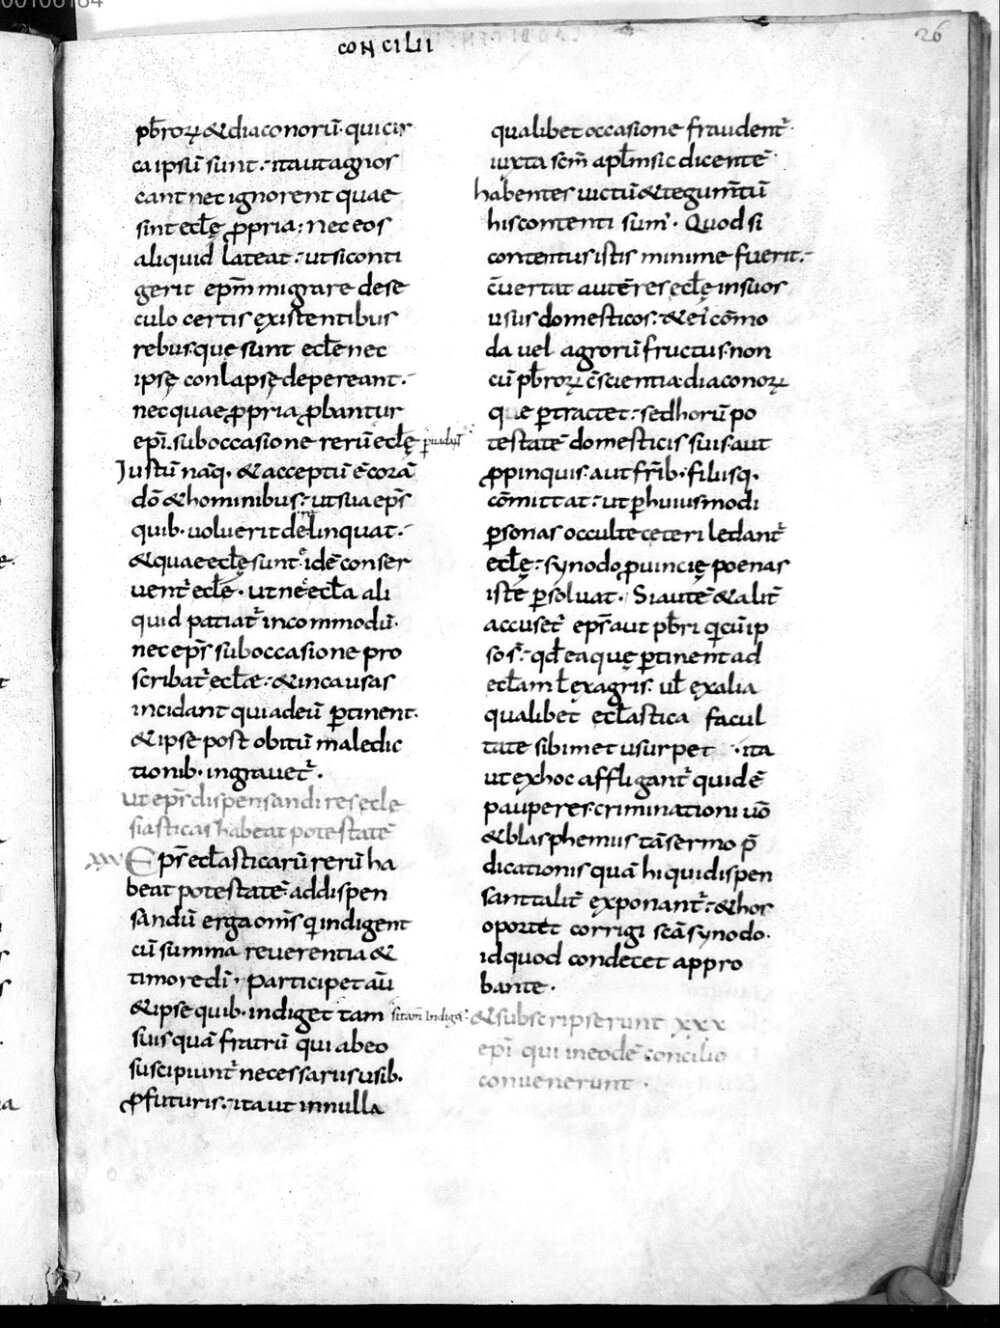 CONCILII
26
pb̄roꝝ & diaconorū · qui cir
ca ipsū sunt · ita ut agnos
cant nec ignorent quae
sint eclę ꝓpria; nec eos
aliquid lateat · ut si conti
gerit ep̄m migrare de se
culo certis existentibus
rebus que sunt ecl̄e nec
ipsę conlapsę depereant ·
nec quae ꝓpria ꝓbantur
ep̄i · sub occasione rerū eclę
Iustū naq · & acceptū ē corā
dō & hominibus · ut sua ep̄s
quib · uoluerit delinquat ·
& quae eclę sunt idē conser
uent̄ ecl̄e · ut ne ecl̄a ali
quid patiat̄ incommodū ·
nec ep̄s sub occasione pro
scribat̄ ecl̄æ · & in causas
incidant qui ad eū ꝑtinent ·
& ipse post obitū maledic
tionib · ingrauet̄ ·
ut ep̄s dispensandi res ecle
siasticas habeat potestatē
xxv Ep̄s ecl̄asticarū rerū ha
beat potestatē addispen
sandū erga om̄s qi indigent
cū summa reuerentia &
timore dī; Participet aū
& ipse quib · indiget tam
suis quā fratrū qui ab eo
suscipiunt̄ necessariis usib ·
ꝓfuturis · ita ut in nulla
qualibet occasione fraudent̄ ·
iuxta sc̄m apl̄m sic dicentē
habentes uictū & tegum̄tū
his contenti sum' · Quod si
contentus istis minime fuerit ·
c̄uertat autē res ecl̄e in suos
usus domesticos · & ei cōmo
da uel agrorū fructus · non
cū pb̄roꝝ c̄scientia diaconoꝝ
que ꝑtractet · sed horū po
testatē domesticis suis aut
ꝓpinquis · aut fr̄ib · filiisq ·
cōmittat · ut ꝑ huiusmodi
ꝑsonas occulte ceteri ledant̄
eclę · synodo ꝓuincię poenas
iste ꝑsoluat · Si autē & alit̄
accuset̄ ep̄s aut pb̄ri qi cū ip
sos̄ · qd ea quę ꝑtinent ad
ecl̄am ł ex agris · ul̄ ex alia
qualibet ecl̄astica facul
tate sibimet usurpet · ita
ut ex hoc affligant̄ quidē
pauperes · criminationi uō
& blasphemiis tā sermo p̄
dicationis quā hi qui dispen
sant talit̄ exponant̄ · & hos
oportet corrigi sc̄ā synodo ·
id quod condecet appro
bante ·
& subscripserunt xxx
ep̄i qui in eodē concilio
conuenerunt ·